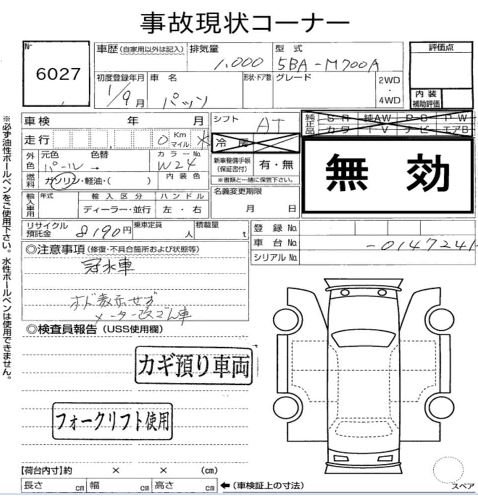 事故現状コーナー
№ 6027
車歴 (自家用以外は記入) 排気量 1,000 型式 5BA-M700A 評価点
初度登録年月 1/9月 車名 パッソ 形状・ドア数 グレード 2WD・4WD 内装補助評価
車検 年 月 シフト AT 純正品 SR 純AW PS PW
走行 0 Km マイル 冷房 カワ TV ナビ エアB
外色 元色 パール 色替 カラー№ W24 新車整備手帳(保証書付) 有・無 無効
燃料 ガソリン・軽油・( ) 内装色 ※書類と一緒に保管下さい。
輸入車用 年式 輸入区分 ディーラー・並行 ハンドル 左・右 名義変更期限 月 日
リサイクル預託金 8190円 乗車定員 人 積載量 t 登録№
車台№ -0147241
シリアル№
◎注意事項 (修復・不具合箇所および状態等)
冠水車
オド表示せず
メーター改ざん車
◎検査員報告 (USS使用欄)
カギ預り車両
フォークリフト使用
【荷台内寸】約 × × (cm)
長さ cm 幅 cm 高さ cm ←(車検証上の寸法)
スペア
※必ず油性ボールペンをご使用下さい。水性ボールペンは使用できません。